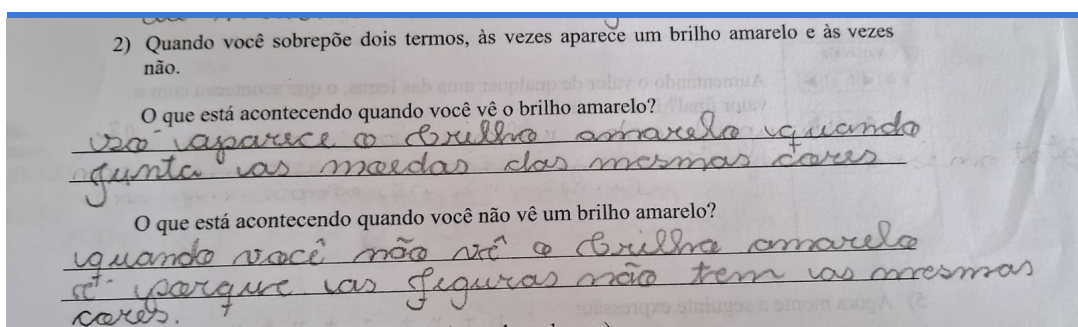 2) Quando você sobrepõe dois termos, às vezes aparece um brilho amarelo e às vezes
não.
O que está acontecendo quando você vê o brilho amarelo?
vso aparece o brilho amarelo quando
junta as moedas das mesmas cores
O que está acontecendo quando você não vê um brilho amarelo?
quando você não vê o brilho amarelo
é porque as figuras não tem as mesmas
cores.